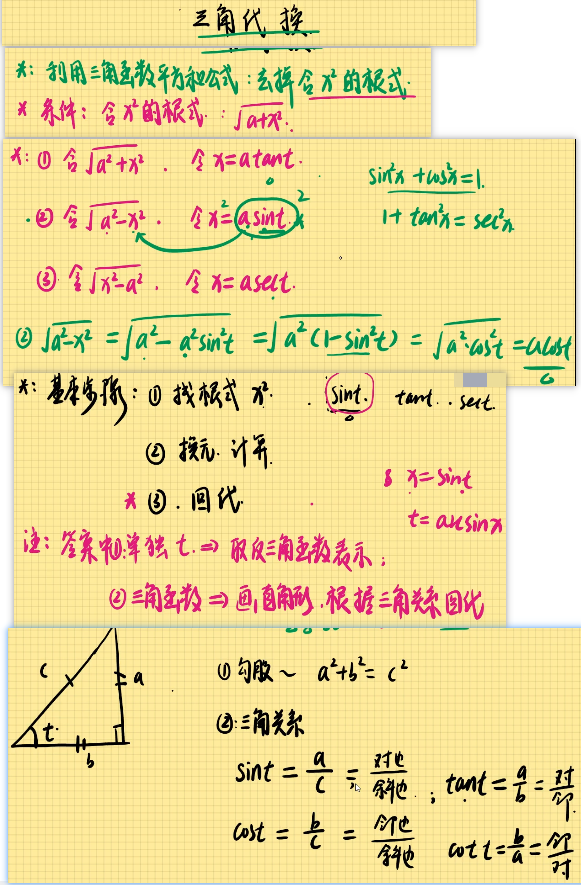 三角代换
*: 利用三角函数平方和公式: 去掉含x²的根式.
* 条件: 含x²的根式. : √(a+x²).
*: ① 含√(a²+x²) . 令 x=atant.
sin²x+cos²x=1.
.② 含√(a²-x²) . 令 x²=(asint)²
1+tan²x=sec²x.
③ 含√(x²-a²) . 令 x=asect.
② √(a²-x²) = √(a²-a²sin²t) = √(a²(1-sin²t)) = √(a²·cos²t) = acost
*: 基本步骤: ① 找根式 x². . sint. tant . . sect.
② 换元. 计算.
* ③ . 回代.
x=sint
t=arcsinx
注: 答案中①.单独t. ⇒ 取反三角函数表示;
② 三角函数 ⇒ 画直角形. 根据三角关系回代
c
a
t.
b
① 勾股~ a²+b²=c²
②:三角关系
sint = a/c = 对边/斜边 ; tant = a/b = 对/邻.
cost = b/c = 邻边/斜边 cott = b/a = 邻/对